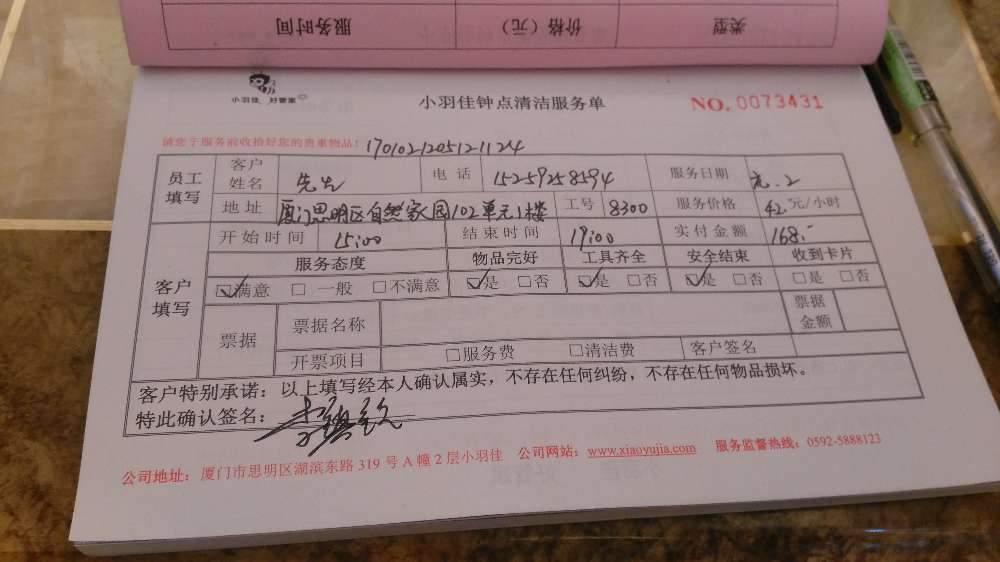 类型 价格（元） 服务时间
小羽佳 好管家
小羽佳钟点清洁服务单
NO. 0073431
请您于服务前收拾好您的贵重物品！ 1701021205121124
员工填写 客户姓名 先生 电话 15259258594 服务日期 元.2
地址 厦门思明区自然家园102单元1楼 工号 8300 服务价格 42元/小时
客户填写 开始时间 15:00 结束时间 19:00 实付金额 168.-
服务态度 物品完好 工具齐全 安全结束 收到卡片
☑满意 □一般 □不满意 ☑是 □否 ☑是 □否 ☑是 □否 □是 □否
票据 票据名称 票据金额
开票项目 □服务费 □清洁费 客户签名
客户特别承诺：以上填写经本人确认属实，不存在任何纠纷，不存在任何物品损坏。
特此确认签名：
公司地址：厦门市思明区湖滨东路 319 号 A 幢 2 层小羽佳 公司网站：www.xiaoyujia.com 服务监督热线：0592-5888123